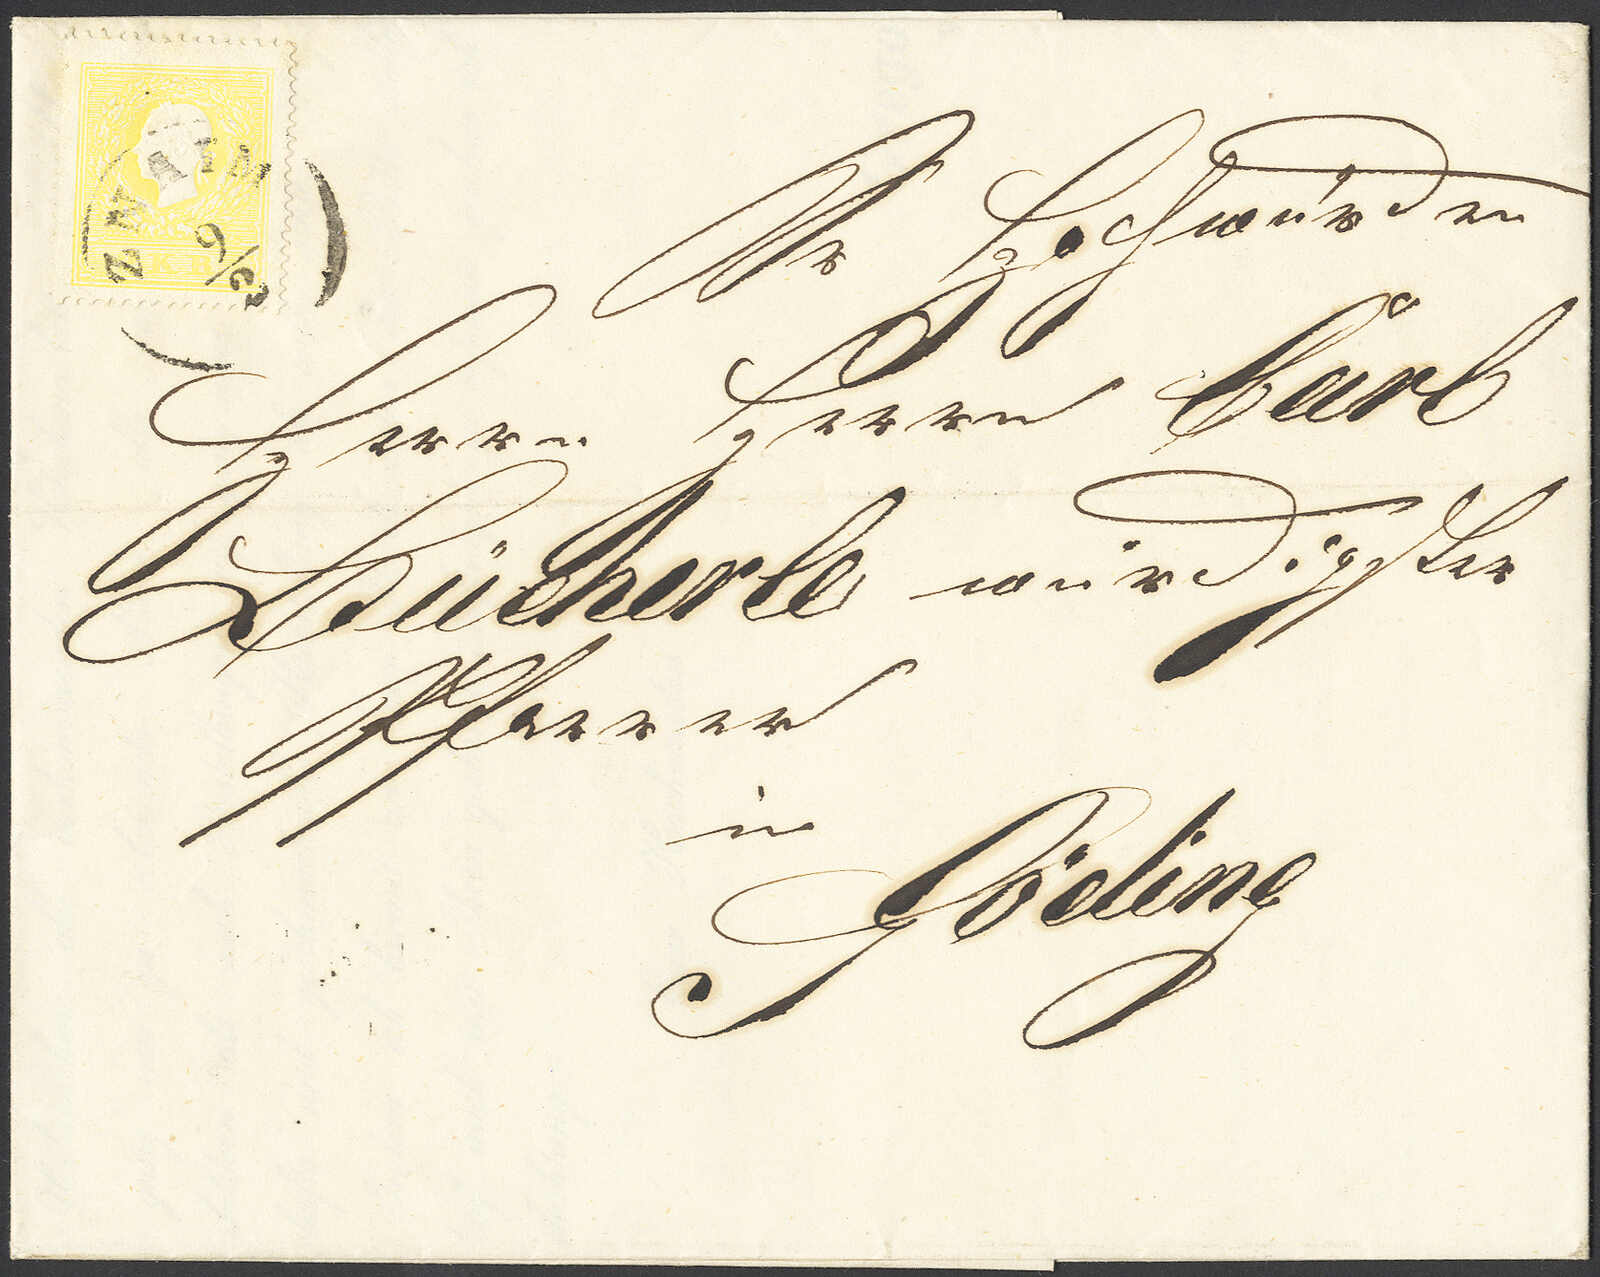 ZNAIM
9/2
Sr Hochwürden
Herrn Herrn Carl
Bücherle würdigster
Pfarrer
in
Göding